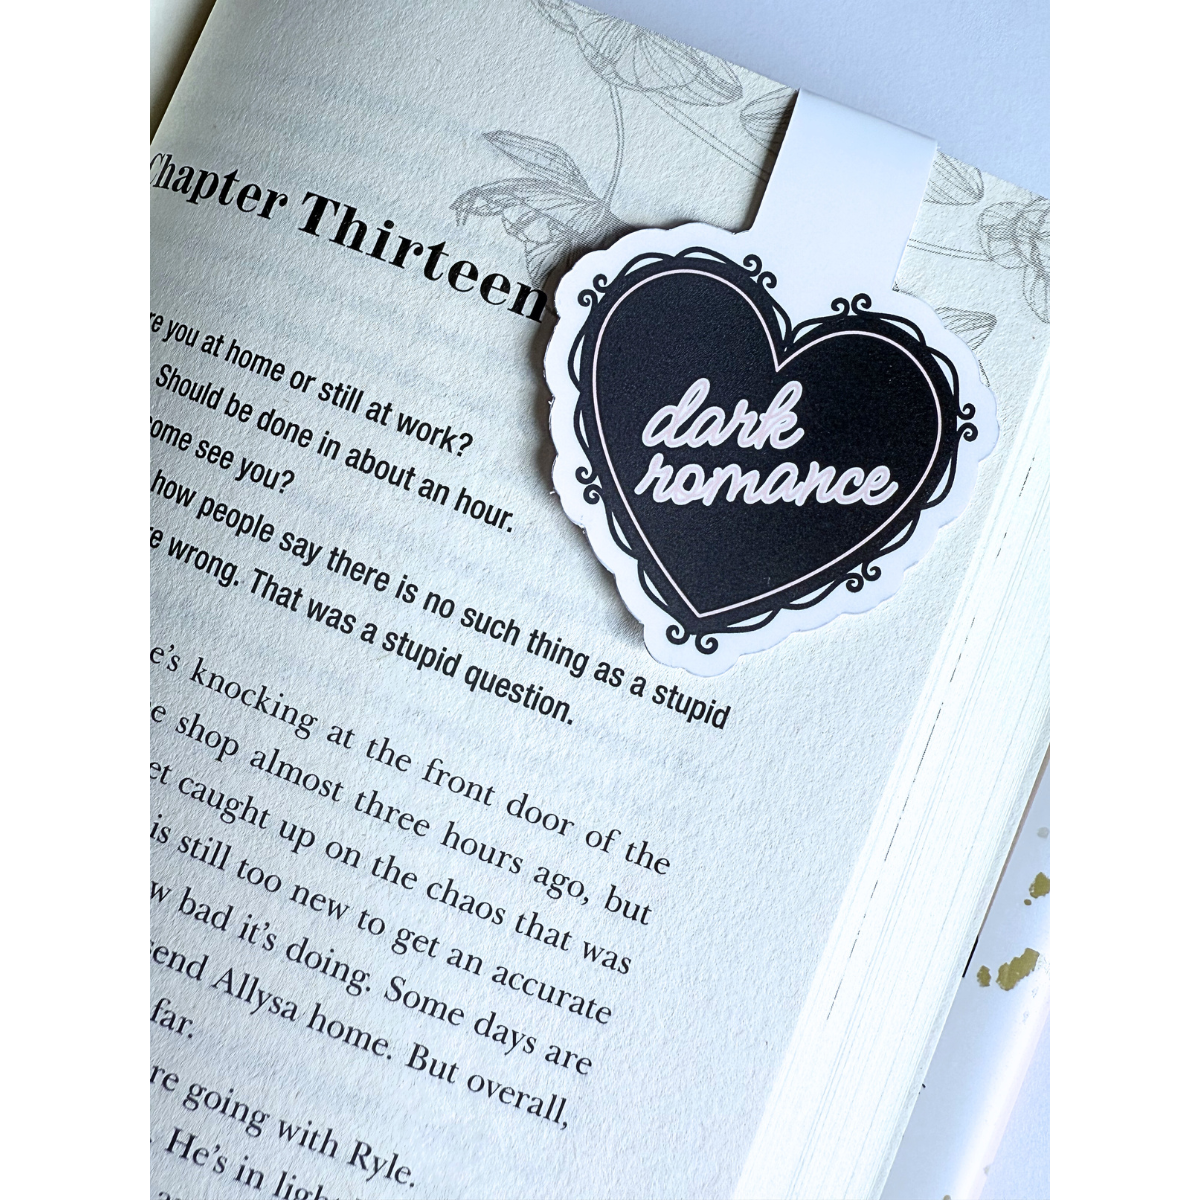 Chapter Thirteen
dark
romance
re you at home or still at work?
Should be done in about an hour.
ome see you?
how people say there is no such thing as a stupid
re wrong. That was a stupid question.
e's knocking at the front door of the
e shop almost three hours ago, but
et caught up on the chaos that was
is still too new to get an accurate
w bad it's doing. Some days are
end Allysa home. But overall,
far.
re going with Ryle.
He's in light